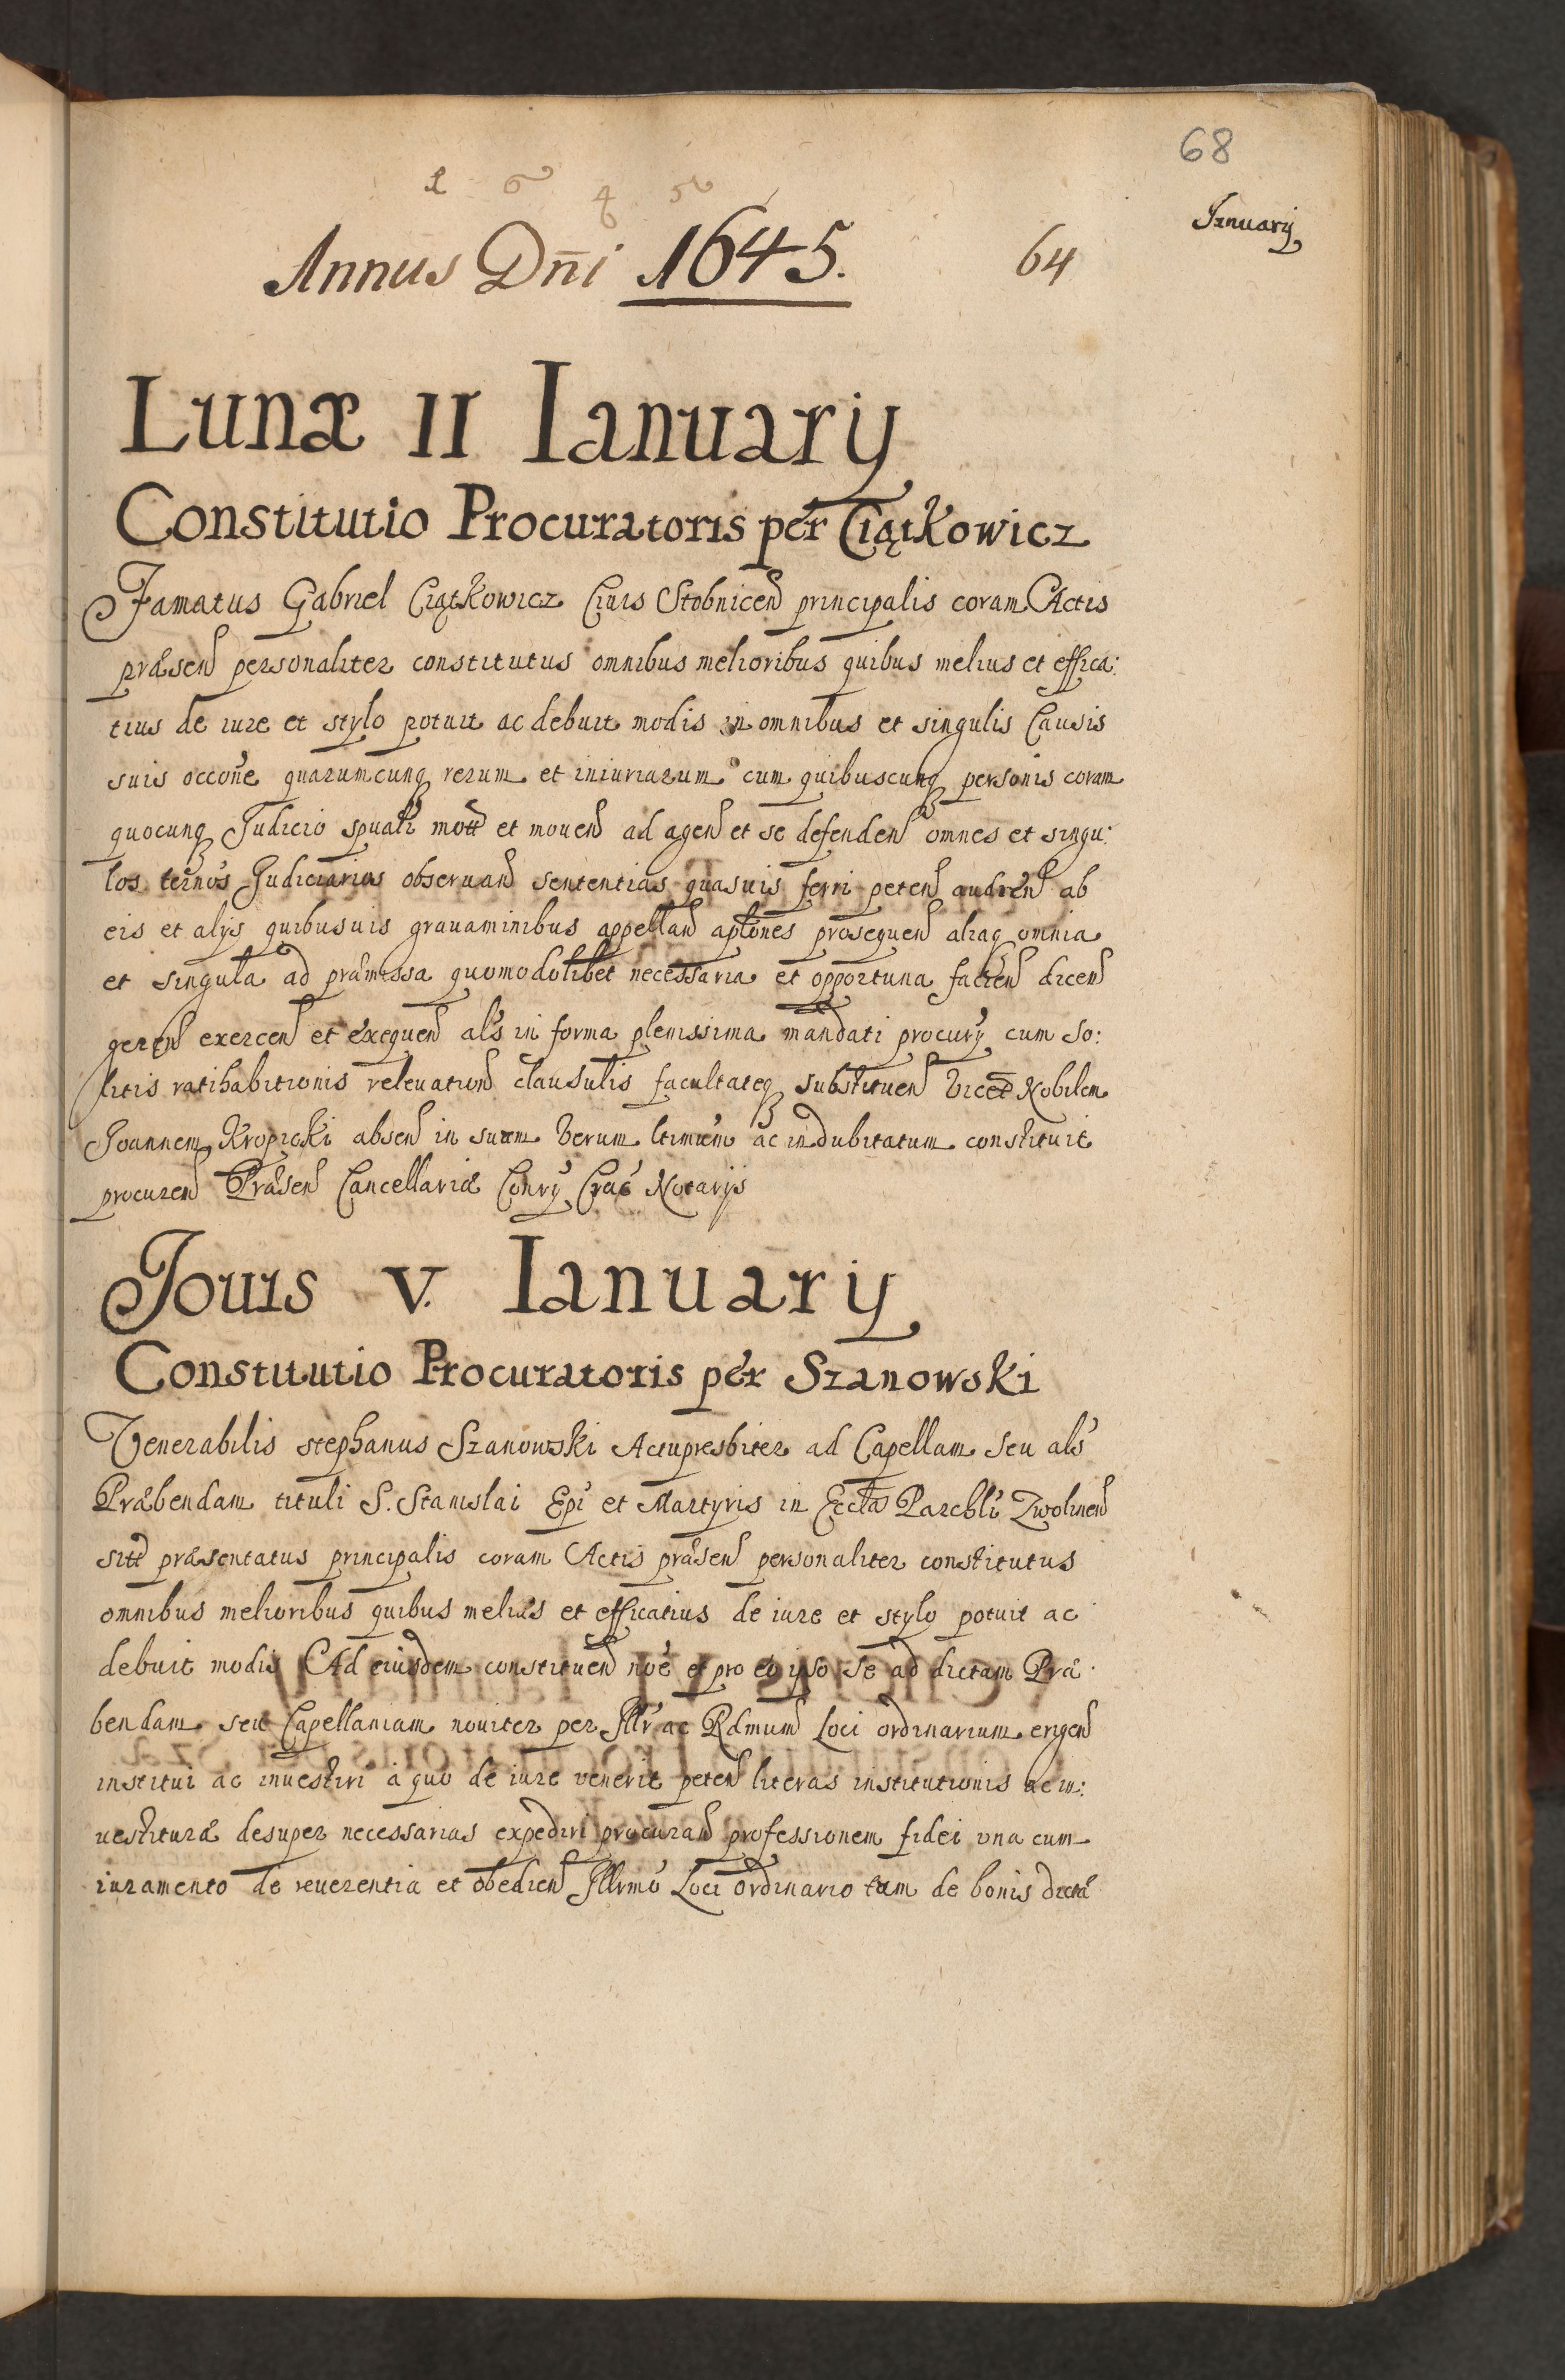 68
January
1 6 4 5
Annus Dñi 1645.
64
Lunæ II Ianuarij
Constitutio Procuratoris per Ciątkowicz
Famatus Gabriel Ciątkowicz Ciuis Stobnicen principalis coram Actis
præsen personaliter constitutus omnibus melioribus quibus melius et effica:
tius de iure et stylo potuit ac debuit modis in omnibus et singulis Causis
suis occone quarumcunq rerum et iniuriarum cum quibuscunq personis coram
quocunq Judicio spuali mott et mouen ad agen et se defenden omnes et singu:
los ternos Judiciarios obseruand sententias quasuis ferri peten audien ab
eis et alijs quibusuis grauaminibus appelland aplones prosequen aliaq omnia
et singula ad præmissa quomodolibet necessaria et opportuna facien dicen
geren exercen et exequen als in forma plenissima mandati procurij cum so:
litis ratihabitionis releuation clausulis facultateq substituen Vice Nobilem
Joannem Kropicki absen in suum verum ltimum ac indubitatum constituit
procuren Præsen Cancellariæ Conrij Crac Notarijs
Jouis V. Ianuarij
Constitutio Procuratoris per Szanowski
Venerabilis stephanus Szanowski Actupresbiter ad Capellam seu als
Præbendam tituli S. Stanislai Epi et Martyris in Eccla Parchli Zwolinen
sitt præsentatus principalis coram Actis præsen personaliter constitutus
omnibus melioribus quibus melius et efficatius de iure et stylo potuit ac
debuit modis Ad eiusdem constituen noe et pro eo ipso se ad dictam Præ:
bendam seu Capellaniam nouiter per Illr ac Rdmum Loci ordinarium erigen
institui ac inuestiri a quo de iure venerit peten literas institutionis ac in:
uestituræ desuper necessarias expediri procurand professionem fidei vna cum
iuramento de reuerentia et obedien Illrmo Loci Ordinario tum de bonis dictæ